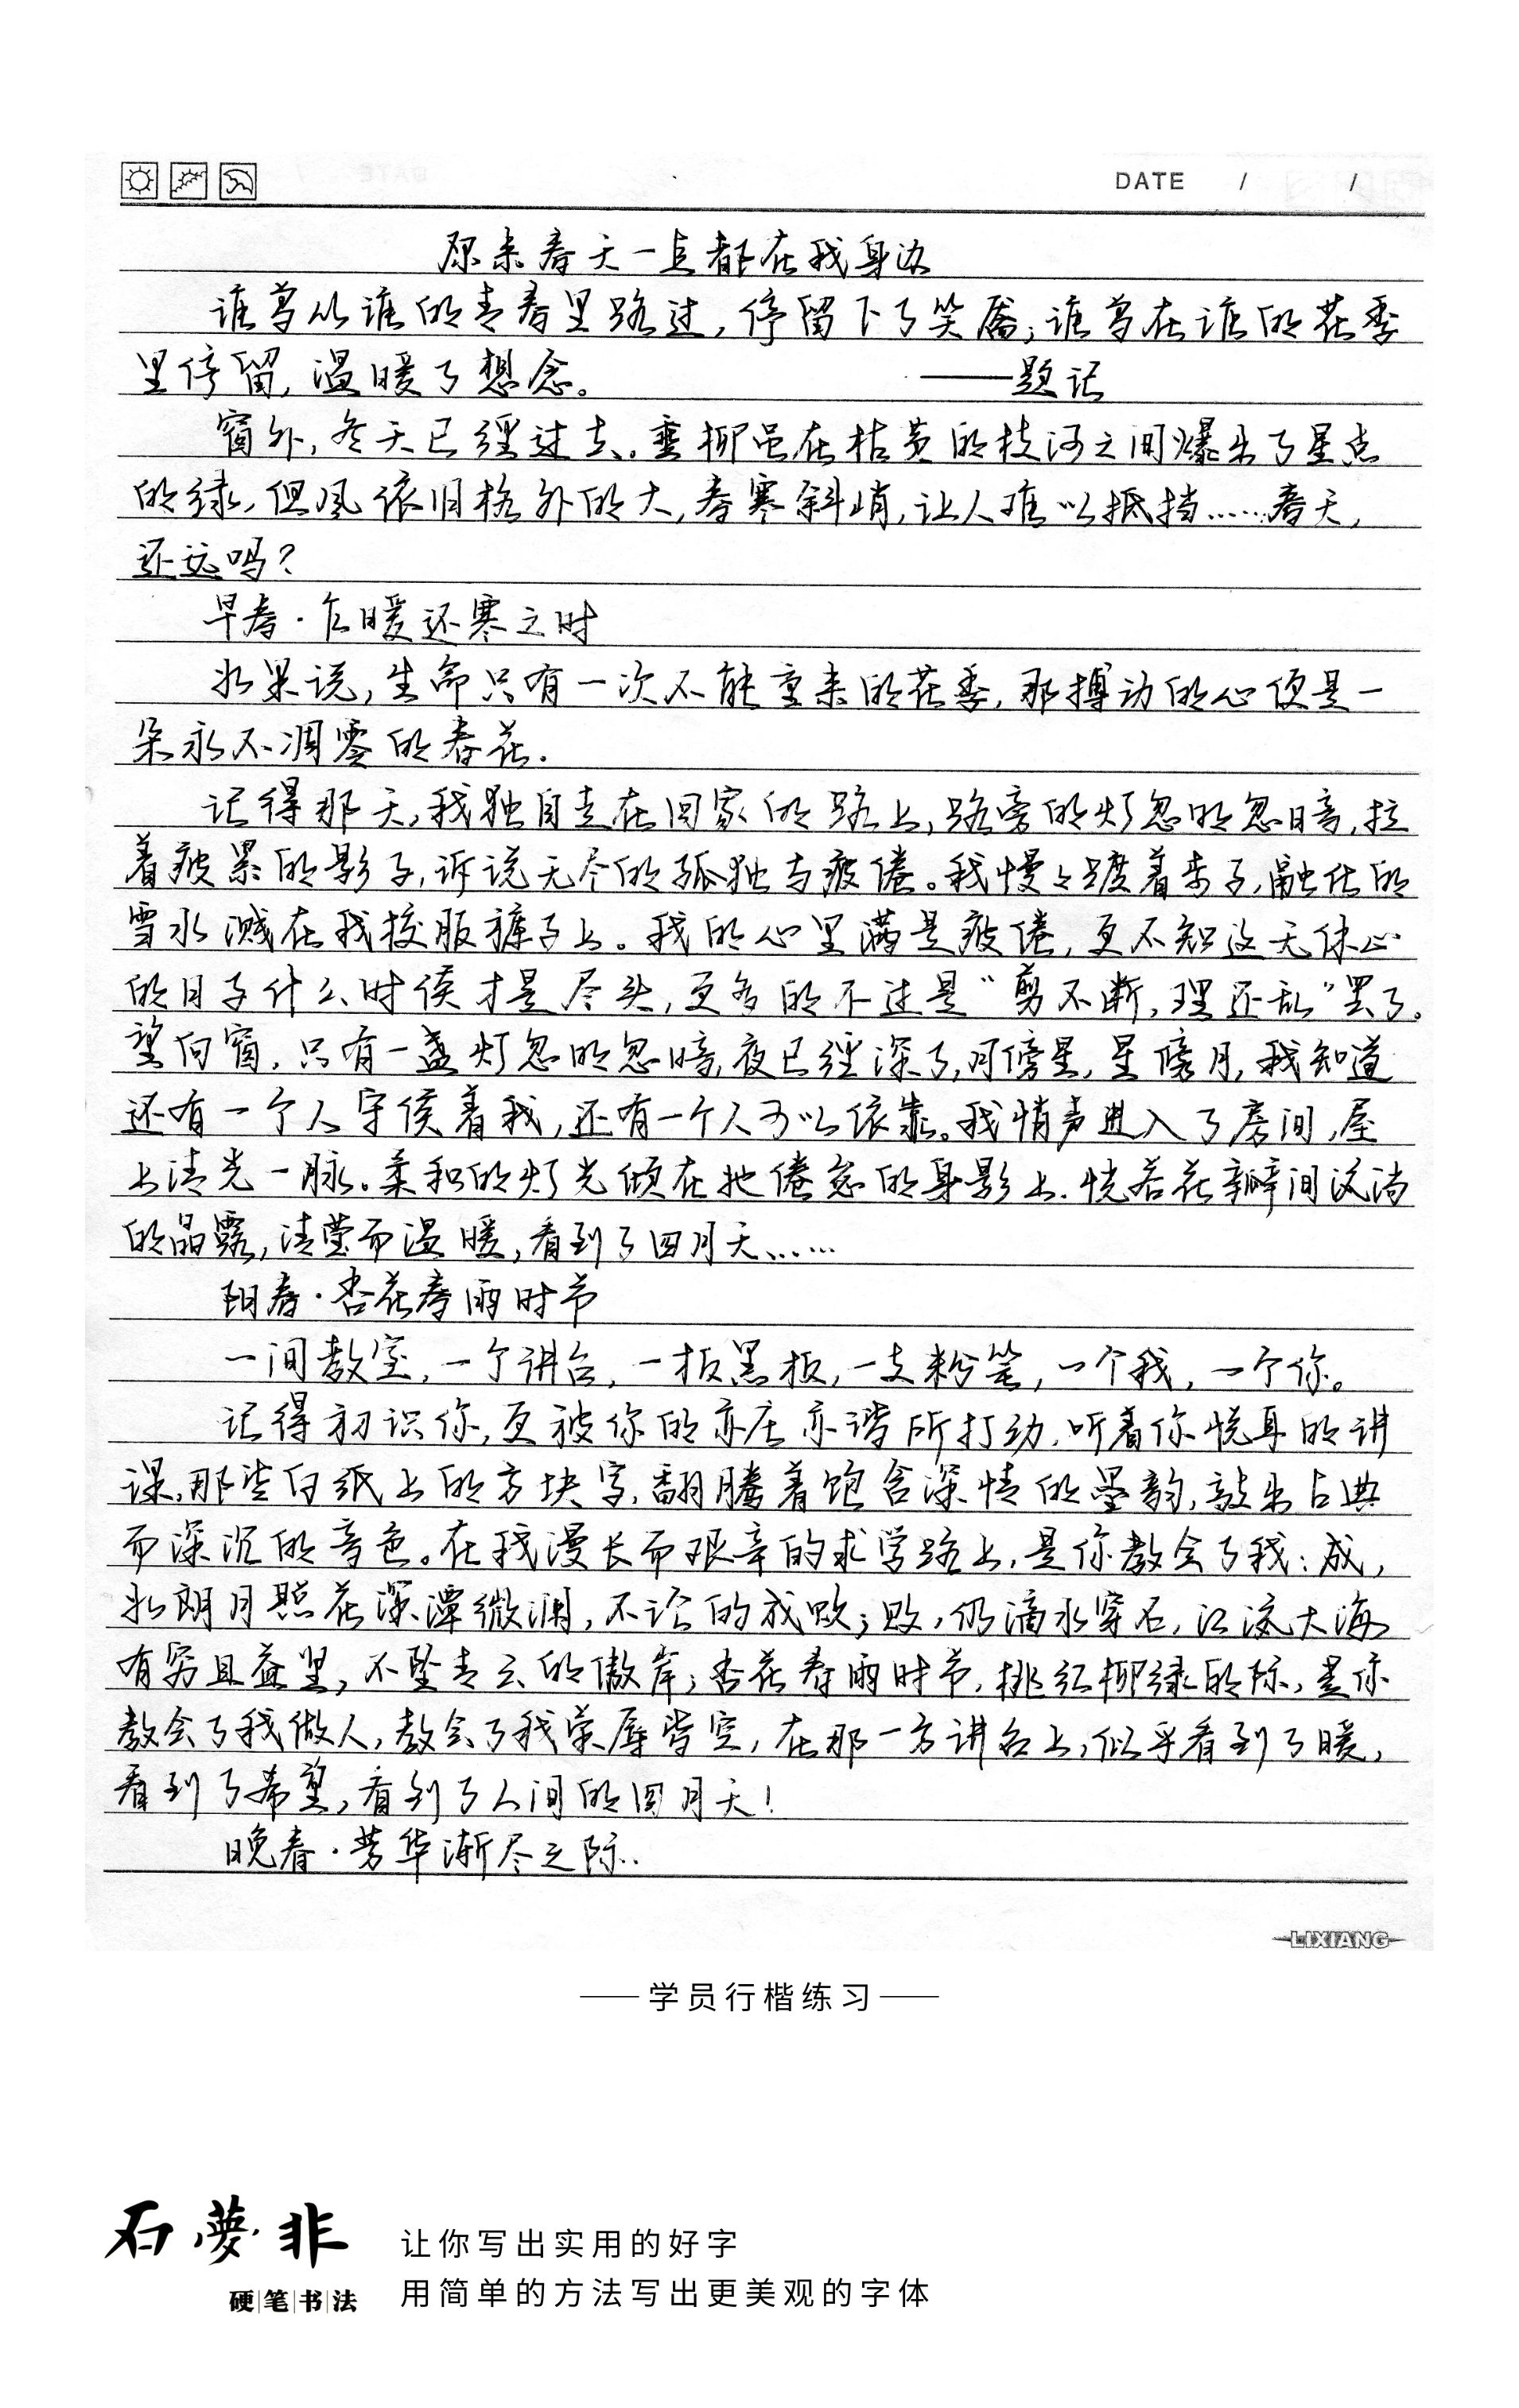 DATE / /
原来春天一直都在我身边
谁曾从谁的青春里路过，停留下了笑靥；谁曾在谁的花季
里停留，温暖了想念。 ——题记
窗外，冬天已经过去。垂柳虽在枯黄的枝河之间爆出了星点
的绿，但风依旧格外的大，春寒斜峭，让人难以抵挡……春天，
还远吗？
早春·乍暖还寒之时
如果说，生命只有一次不能重来的花季，那搏动的心便是一
朵永不凋零的春花．
记得那天，我独自走在回家的路上，路旁的灯忽明忽暗，拉
着疲累的影子，诉说无尽的孤独与疲倦。我慢々踱着步子，融化的
雪水溅在我校服裤子上。我的心里满是疲倦，更不知这无休止
的日子什么时侯才是尽头，更多的不过是“剪不断，理还乱”罢了。
望向窗，只有一盏灯忽明忽暗，夜已经深了，月傍星，星傍月，我知道
还有一个人守侯着我，还有一个人可以依靠。我悄声进入了房间，屋
上清光一脉。柔和的灯光倾在她倦怠的身影上．恍若花瓣间流淌
的晶露，清莹而温暖，看到了四月天……
阳春·杏花春雨时节
一间教室，一个讲台，一板黑板，一支粉笔，一个我，一个你。
记得初识你，更被你的亦庄亦谐所打动，听着你悦耳的讲
课，那些白纸上的方块字，翻腾着饱含深情的墨韵，敲出古典
而深沉的音色。在我漫长而艰辛的求学路上，是你教会了我：成，
如朗月照花深潭微澜，不论的成败；败，仍滴水穿石，江流大海
有穷且益坚，不坠青云的傲岸；杏花春雨时节，桃红柳绿的际，是你
教会了我做人，教会了我荣辱皆空，在那一方讲台上，似乎看到了暖，
看到了希望，看到了人间的四月天！
晚春·芳华渐尽之际．
LIXIANG
学员行楷练习
石夢非
硬笔书法
让你写出实用的好字
用简单的方法写出更美观的字体